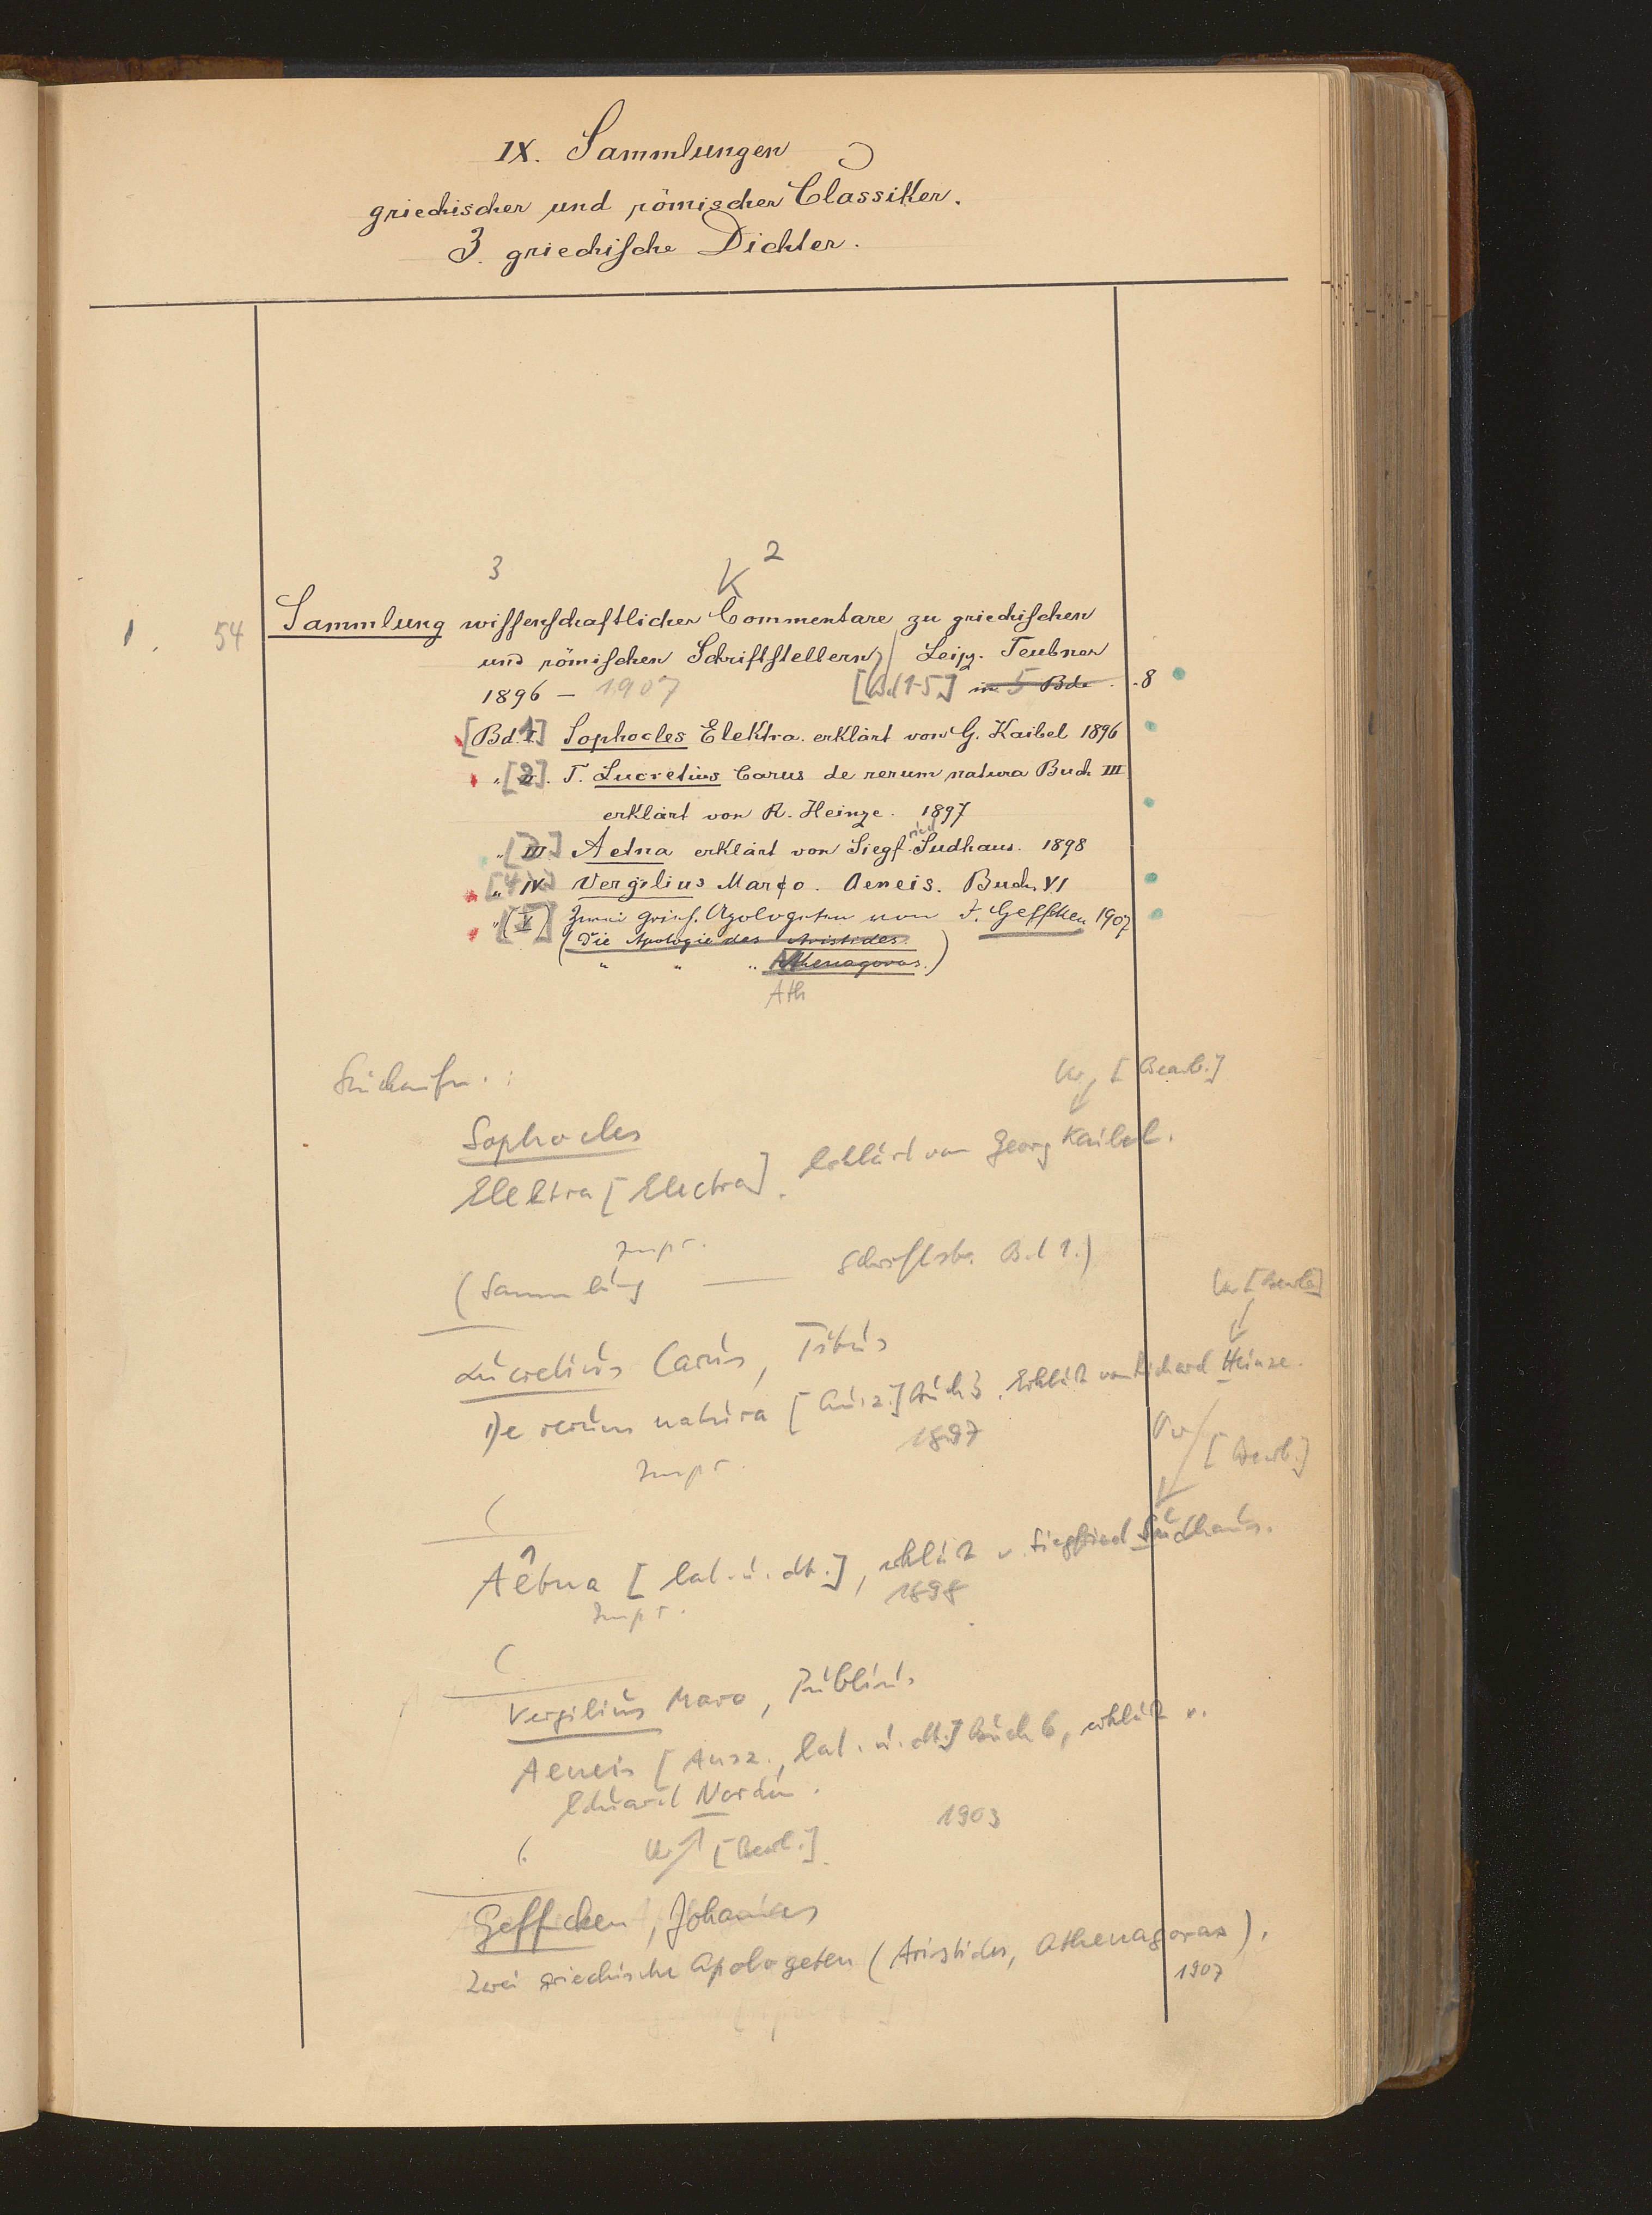 IX. Sammlungen
griechischer und römischer Classiker.
3. griechische Dichter.
3 K 2
1. 54 Sammlung wissenschaftlicher Commentare zu griechischen
und römischen Schriftstellern / Leipz. Teubner
1896 – 1907 [Bd 1-5] in 5 Bde. 8
[Bd. 1] Sophocles Elektra. erklärt von G. Kaibel 1896
„ [2]. T. Lucretius Carus de rerum natura Buch III
erklärt von R. Heinze. 1897
„ [III] Aetna erklärt von Siegfried Sudhaus. 1898
„ [4] IV Vergilius Maro. Aeneis. Buch VI
„ [V] Zwei griech. Apologeten von J. Geffcken 1907
(Die Apologie des Aristides.
„ „ „ Athenagoras.)
Ath
[Bearb.]
Sophocles
Elektra [Electra]. Erklärt von Georg Kaibel.
(Sammlung — Schriftst. Bd 1.)
[Bearb.]
Lucretius Carus, Titus
De rerum natura [Ausz.] Buch 3. Erklärt von Richard Heinze.
1897
[Bearb.]
(
Aetna [lat. u. dt.], erklärt v. Siegfried Sudhaus.
1898
(
Vergilius Maro, Publius
Aeneis [Ausz., lat. u. dt.] Buch 6, erklärt v.
Eduard Norden.
1903
( [Bearb.]
Geffcken, Johannes
Zwei griechische Apologeten (Aristides, Athenagoras).
1907